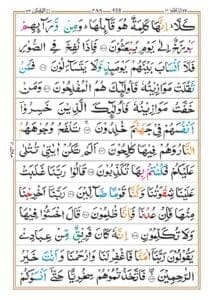 كَلَّا ؕ اِنَّهَا كَلِمَةٌ هُوَ قَآئِلُهَا ؕ وَمِنْ وَّرَآئِهِمْ
بَرْزَخٌ اِلٰى يَوْمِ يُبْعَثُوْنَ ۝ فَاِذَا نُفِخَ فِى الصُّوْرِ
فَلَآ اَنْسَابَ بَيْنَهُمْ يَوْمَئِذٍ وَّلَا يَتَسَآءَلُوْنَ ۝ فَمَنْ
ثَقُلَتْ مَوَازِيْنُهٗ فَاُولٰٓئِكَ هُمُ الْمُفْلِحُوْنَ ۝ وَمَنْ
خَفَّتْ مَوَازِيْنُهٗ فَاُولٰٓئِكَ الَّذِيْنَ خَسِرُوْٓا
اَنْفُسَهُمْ فِىْ جَهَنَّمَ خٰلِدُوْنَ ۝ تَلْفَحُ وُجُوْهَهُمُ
النَّارُ وَهُمْ فِيْهَا كٰلِحُوْنَ ۝ اَلَمْ تَكُنْ اٰيٰتِىْ تُتْلٰى
عَلَيْكُمْ فَكُنْتُمْ بِهَا تُكَذِّبُوْنَ ۝ قَالُوْا رَبَّنَا غَلَبَتْ
عَلَيْنَا شِقْوَتُنَا وَكُنَّا قَوْمًا ضَآلِّيْنَ ۝ رَبَّنَآ اَخْرِجْنَا
مِنْهَا فَاِنْ عُدْنَا فَاِنَّا ظٰلِمُوْنَ ۝ قَالَ اخْسَئُوْا فِيْهَا
وَلَا تُكَلِّمُوْنِ ۝ اِنَّهٗ كَانَ فَرِيْقٌ مِّنْ عِبَادِىْ
يَقُوْلُوْنَ رَبَّنَآ اٰمَنَّا فَاغْفِرْ لَنَا وَارْحَمْنَا وَاَنْتَ خَيْرُ
الرّٰحِمِيْنَ ۝ فَاتَّخَذْتُمُوْهُمْ سِخْرِيًّا حَتّٰٓى اَنْسَوْكُمْ